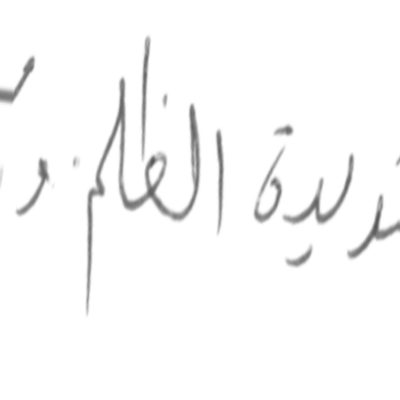 شديدة الظلم . و